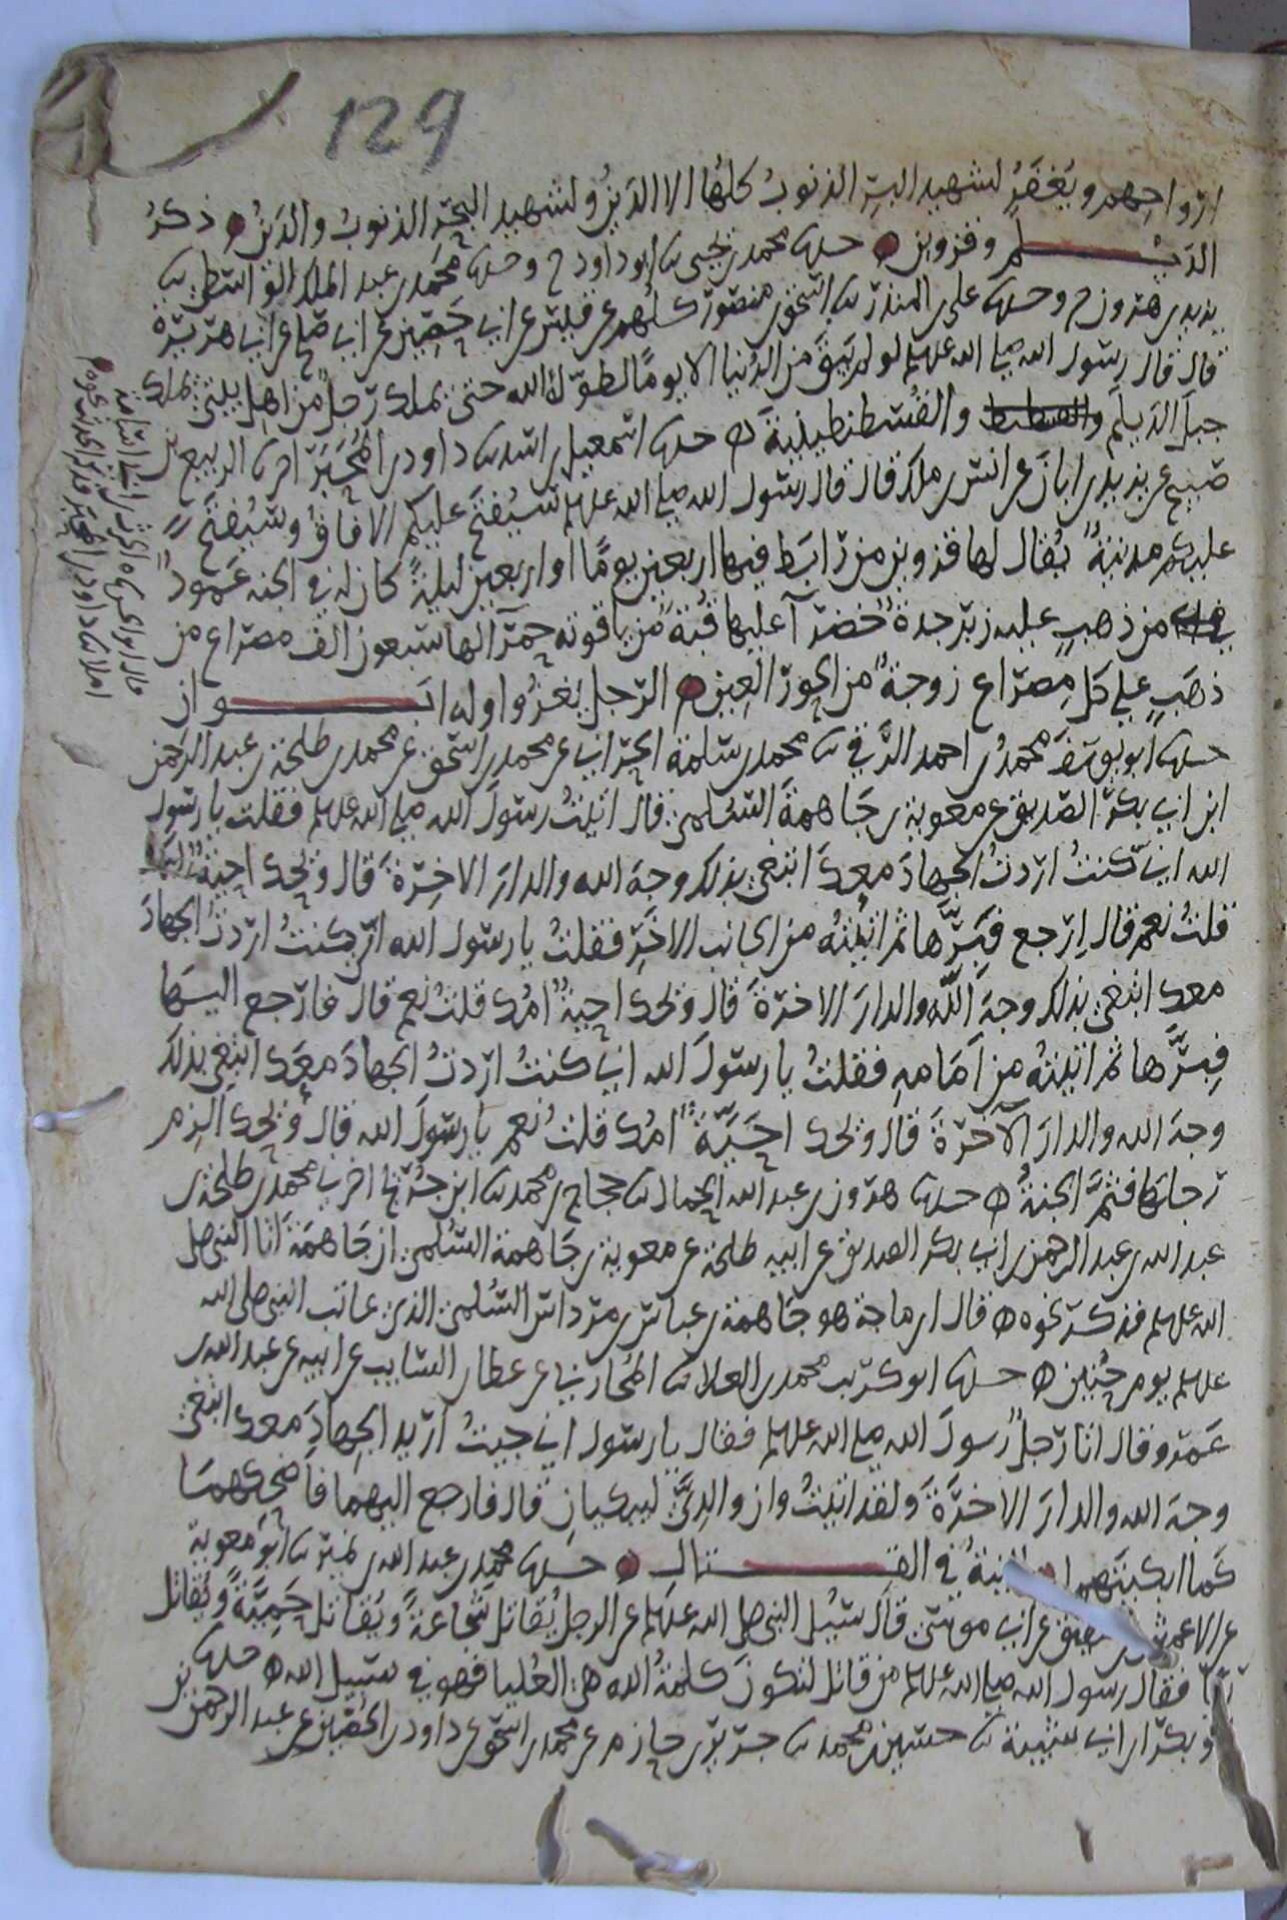 129
ارواحهم ويُغفَرُ لشهيد البرّ الذنوبُ كلها الا الدَينُ ولشهيد البَحر الذنوبُ والدَينُ ذكرُ
الدَيْلم وقزوين حدثنا محمد بن يحيى ثنا ابو داود ح وحدثنا محمد بن عبد الملك الواسطي ثنا
يزيد بن هرون ح وحدثنا علي بن المنذر ثنا اسحق بن منصور كلهم عن قيس عن ابي حَصين عن ابي صالح عن ابي هريرة
قال قال رسول الله صلى الله عليه وسلم لو لم يَبقَ من الدُنيا الا يومًا لطوّله الله حتى يملك رَجلٌ من اهل بيتي يملك
جبلَ الدَيلَم والقسطنطينية حدثنا اسمعيل بن اسد ثنا داود بن المُحَبَّر اخبرنا الربيع بن
صَبيح عن يزيد بن ابان عن انس بن ملك قال قال رسول الله صلى الله عليه وسلم ستُفتَح عليكم الافاقُ وستُفتَح
عليكم مدينةٌ يُقال لها قزوين من رابَط فيها اربعين يومًا او اربعين ليلةً كان له في الجنة عَمودٌ
من ذهبٍ عليه زبرجدةٌ خضرآ عليها قُبةٌ من ياقوته حمرآ لها سبعون الف مصراع من
ذهَبٍ على كل مِصراع زوجةٌ من الحور العِين الرجل يَغزُو اوله ابوان
حدثنا ابو يوسف محمدُ بن احمد الرَّقي ثنا محمد بن سلمة الحراني عن محمد بن اسحق عن محمد بن طلحة بن عبد الرحمن
ابن ابي بكر الصديق عن معوية بن جَاهمة السُلمي قال اتيتُ رسولَ الله صلى الله عليه وسلم فقلت يا رسول
الله اني كنتُ اردتُ الجهادَ معكَ ابتغي بذلك وجهَ الله والدارَ الاخِرةَ قال وَيحك احيّةٌ امُك
قلتُ نعم قال اِرجع فبَرَّها ثم اتيتُه من الجانب الاخَر فقلتُ يا رسول الله اني كنتُ اردتُ الجهادَ
معك ابتغي بذلك وجهَ اللّه والدارَ الاخرةَ قال وَيحك احيةٌ امُك قلتُ نعم قال فارجع اليها
فبَرَّها ثم اتيتُه من اَمَامه فقلتُ يا رسولَ الله اني كنتُ اردتُ الجهادَ معَك ابتغي بذلك
وجهَ الله والدارَ الآخرةَ قال ويحك احَيّةٌ امُك قلتُ نعم يا رسولَ الله قال وَيحك الزم
رجلَها فثَمَّ الجنةُ حدثنا هرون بن عبد الله الحمال ثنا حجاج بن محمد ثنا ابن جُريج اخبرني محمد بن طلحة بن
عبد الله بن عبد الرحمن بن ابي بكر الصديق عن ابيه طلحة عن معوية بن جَاهمة السُلمي ان جَاهمَةَ اتا النبي صلى
الله عليه وسلم فذكر نحوه قال ابن ماجة هو جَاهمة بن عباس بن مرداس السُلمي الذي عاتب النبي صلى الله
عليه وسلم يوم حُنين حدثنا ابو كريب محمد بن العلاء ثنا المُحاربي عن عطاء بن السايب عن ابيه عن عبد الله بن
عَمرو قال اتا رَجلٌ رسولَ الله صلى الله عليه وسلم فقال يا رسول اني جيتُ اريد الجهادَ معك ابتغي
وجهَ الله والدارَ الاخرَةَ ولقد اتيتُ وان والدِيَّ ليبكيانِ قال فارجع اليهما فاَضحكهمَا
كَما ابكيتَهما النيةُ في القتالِ حدثنا محمد بن عبد الله بن نمير ثنا ابو معوية
عن الاعمش عن شقيق عن ابي موسى قال سُيل النبي صلى الله عليه وسلم عن الرجل يُقاتل شجاعةً ويُقاتل حَمِيَّةً ويُقاتل
ريآ فقال رسول الله صلى الله عليه وسلم من قاتل لتكونَ كلمةُ الله هي العُليا فهو في سبيل الله حدثنا
ابو بكر بن ابي شيبة ثنا حسين بن محمد ثنا جرير بن حازم عن محمد بن اسحق عن داود بن الحُصَين عن عبد الرحمن بن